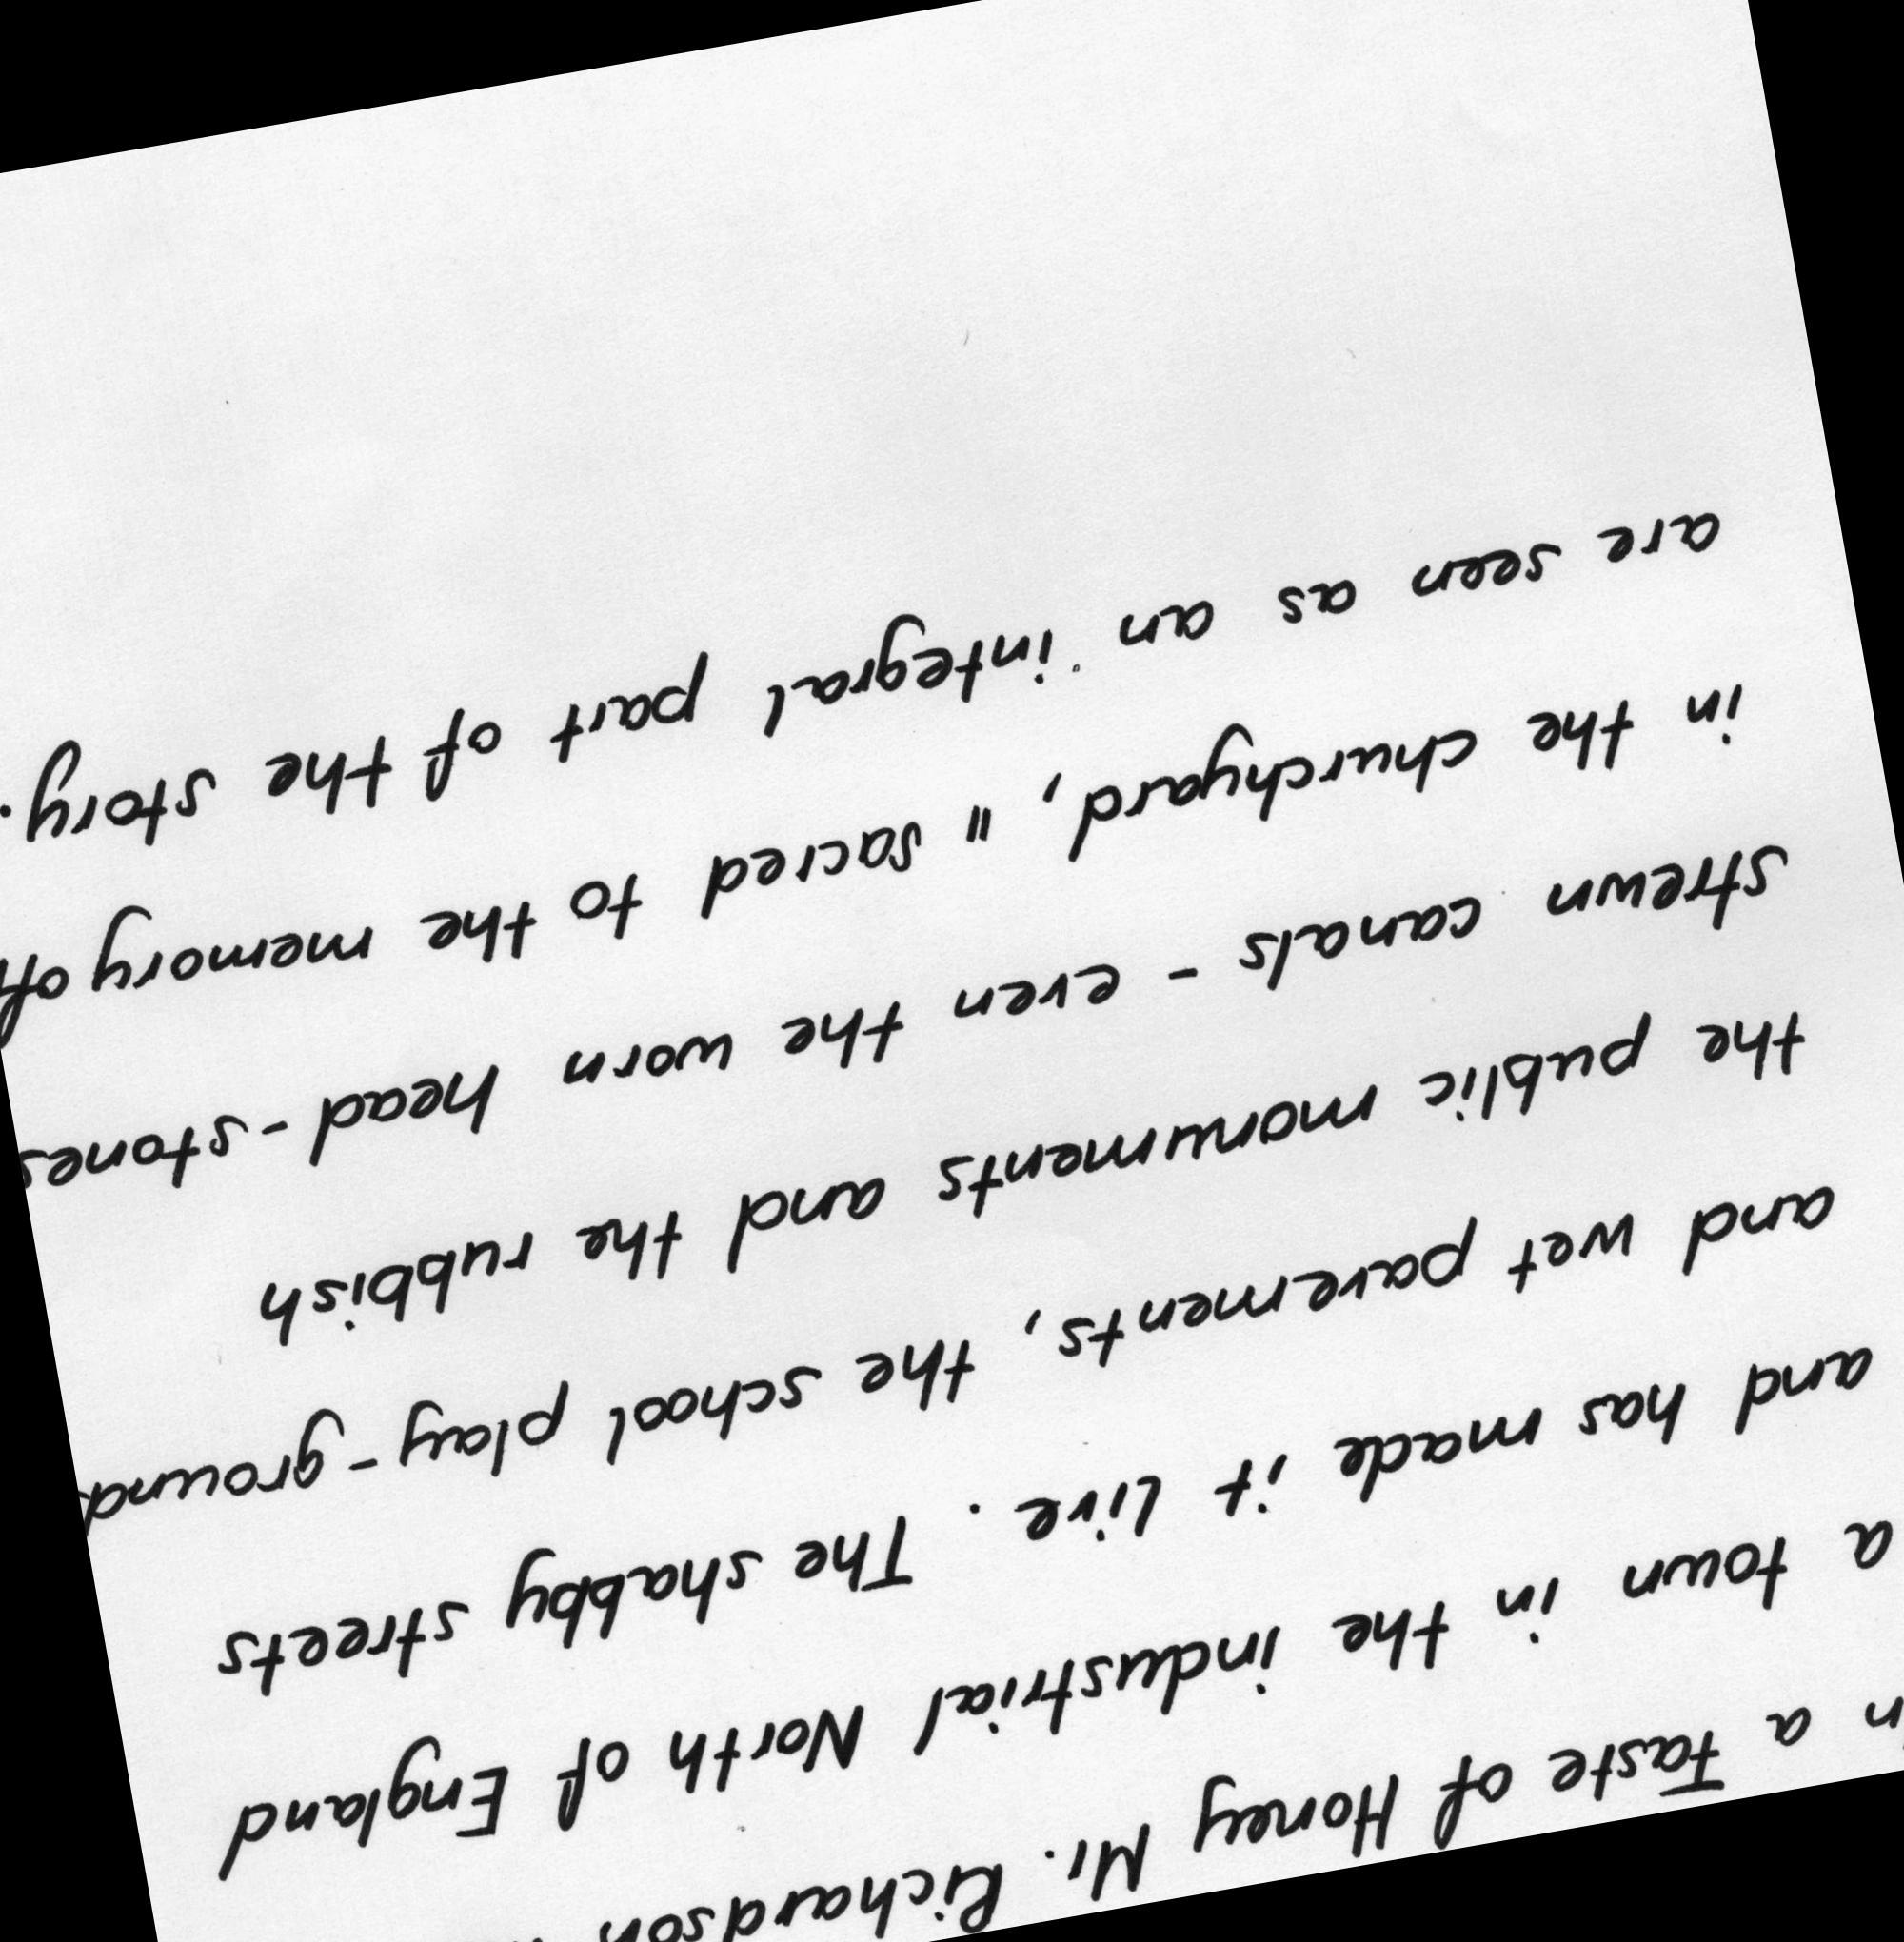 a Taste of Honey Mr. Richardson
a town in the industrial North of England
and has made it live. The shabby streets
and wet pavements, the school play-ground
the public monuments and the rubbish
strewn canals - even the worn head-stones
in the churchyard, " sacred to the memory of"
are seen as an integral part of the story.